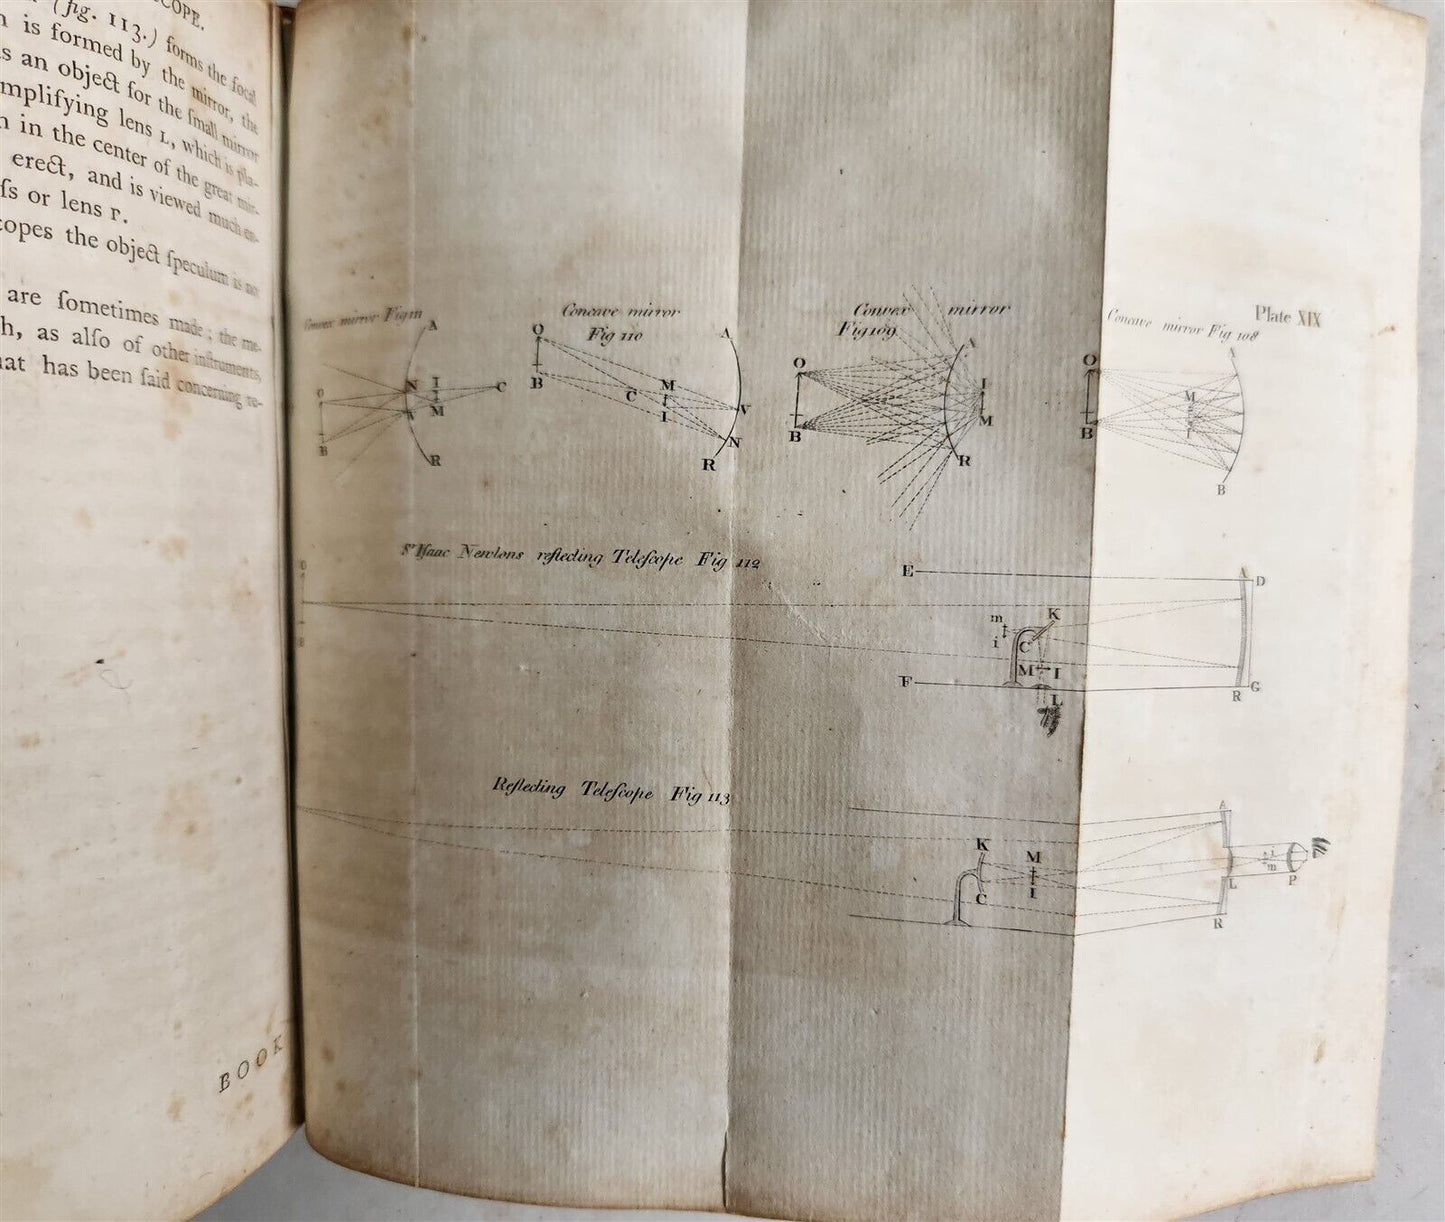 SCOPE.
(fig. 113.) forms the focal
is formed by the mirror, the
s an object for the ſmall mirror
mplifying lens L, which is pla-
n in the center of the great mir-
erect, and is viewed much en-
ſs or lens P.
copes the object ſpeculum is not
are ſometimes made; the me-
h, as alſo of other inſtruments,
hat has been ſaid concerning re-
BOOK
Plate XIX
Convex mirror Fig 111
A
O
N
I
C
M
B
R
Concave mirror
Fig 110
O
A
B
M
C
I
V
N
R
Convex mirror
Fig 109
A
O
I
M
B
R
Concave mirror Fig 108
A
O
M
I
B
B
Sr Iſaac Newtons reflecting Teleſcope Fig 112
O
B
E
A
D
K
m
i
C
M
I
F
L
R
G
Reflecting Teleſcope Fig 113
A
K
M
i
m
C
I
L
P
R